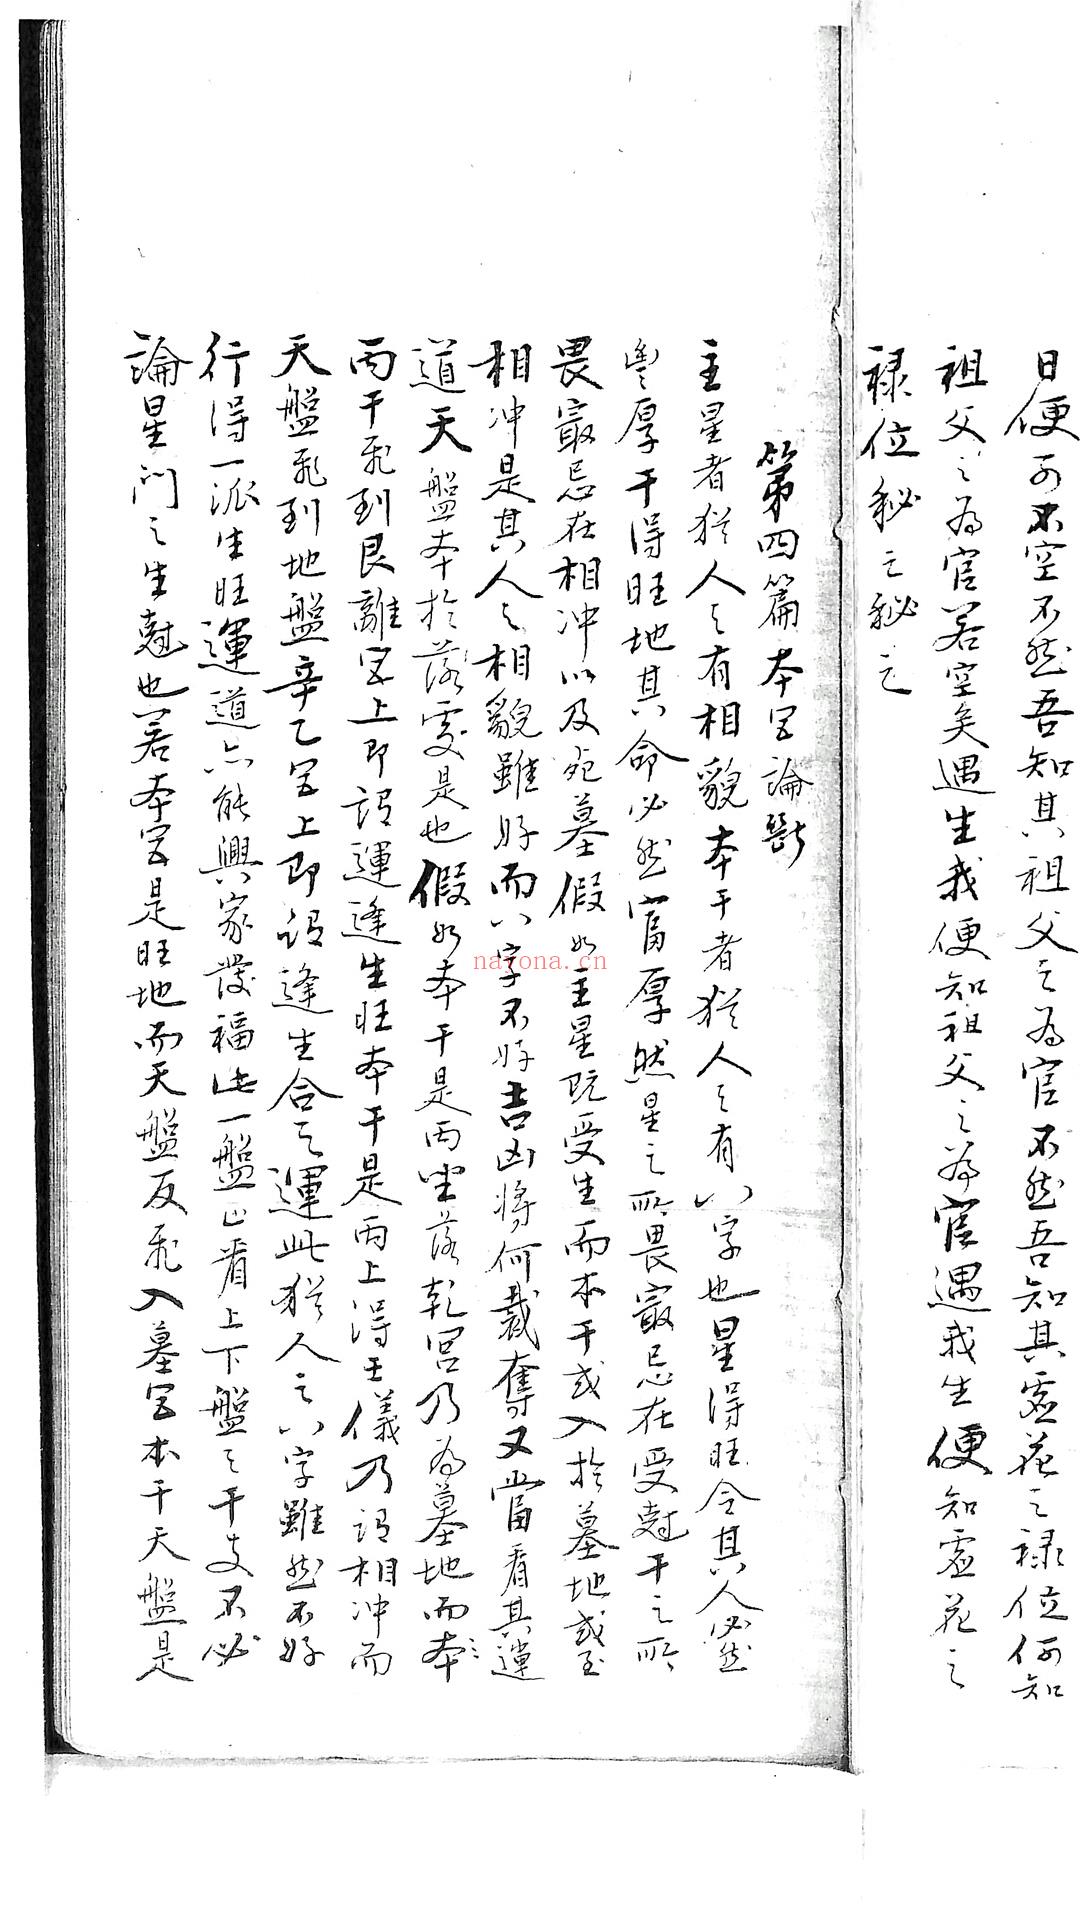 日便可不空不然吾知其祖父之為官不然吾知其虛花之祿位何知
祖父之為官若空矣遇生我便知祖父之為官遇我生便知虛花之
祿位秘之秘之
第四篇本宮論斷
主星者猶人之有相貌本干者猶人之有八字也星得旺令其人必然
豐厚干得旺地其命必然富厚然星之所畏最忌在受尅干之所
畏最忌在相冲以及死墓假如主星既受生而本干或入於墓地或至
相冲是其人之相貌雖好而八字不好吉凶將何裁奪又當看其運
道天盤本於落處是也假如本干是丙坐落乾宮乃為墓地而本
丙干飛到艮離宮上即謂運逢生旺本干是丙上得壬儀乃謂相冲而
天盤飛到地盤辛乙宮上即謂逢生合之運此猶人之八字雖然不好
行得一派生旺運道亦能興家發福此一盤止看上下盤之干支不必
論星門之生尅也若本宮是旺地而天盤反飛入墓宮本干天盤是
nayona.cn